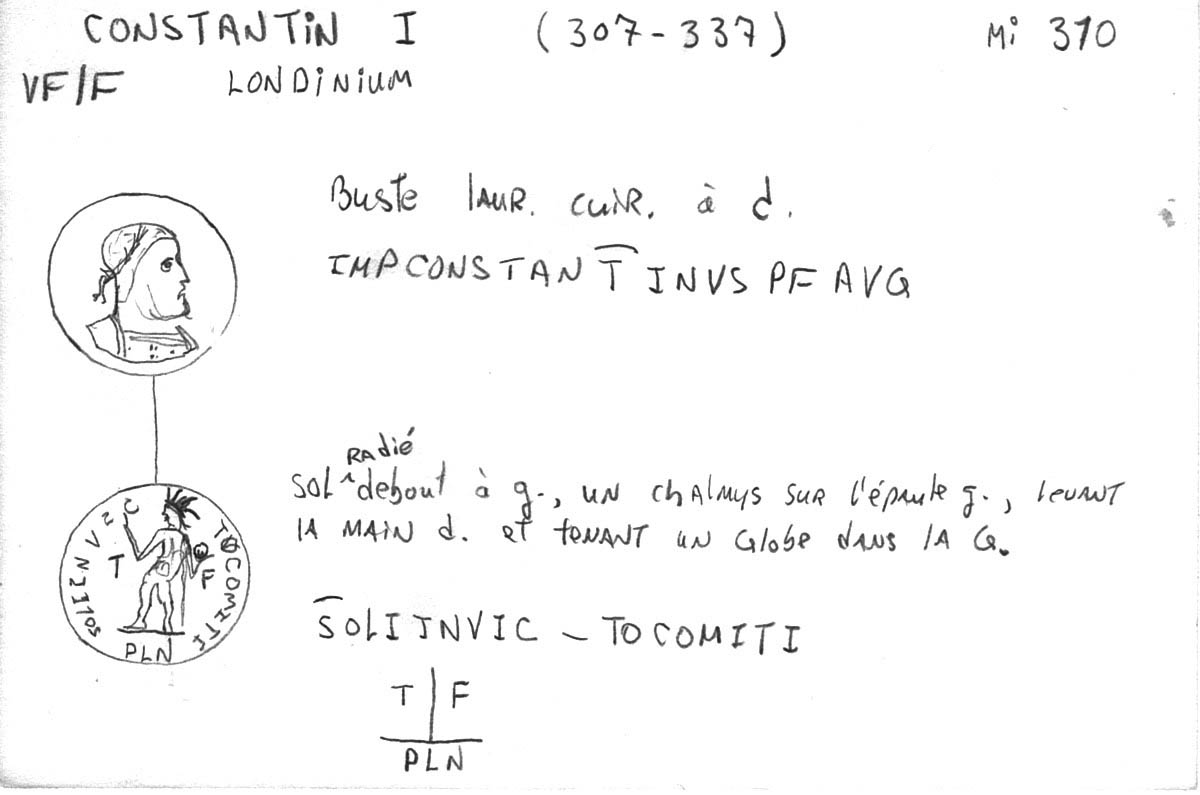 CONSTANTiN I (307-337) Mi 310
VF/F LONDiNiUM
Buste lAUR. CUiR. à d.
IMPCONSTANTINVS PF AVG
RAdié
SOL ^ debout à g., UN chAlmys SUR l'épaule g., levANT
lA MAiN d. et teNANT UN Globe dANS lA G.
SOLI INVIC – TO COMITI
T | F
PLN
SOLIINVIC
TOCOMITI
T F
PLN